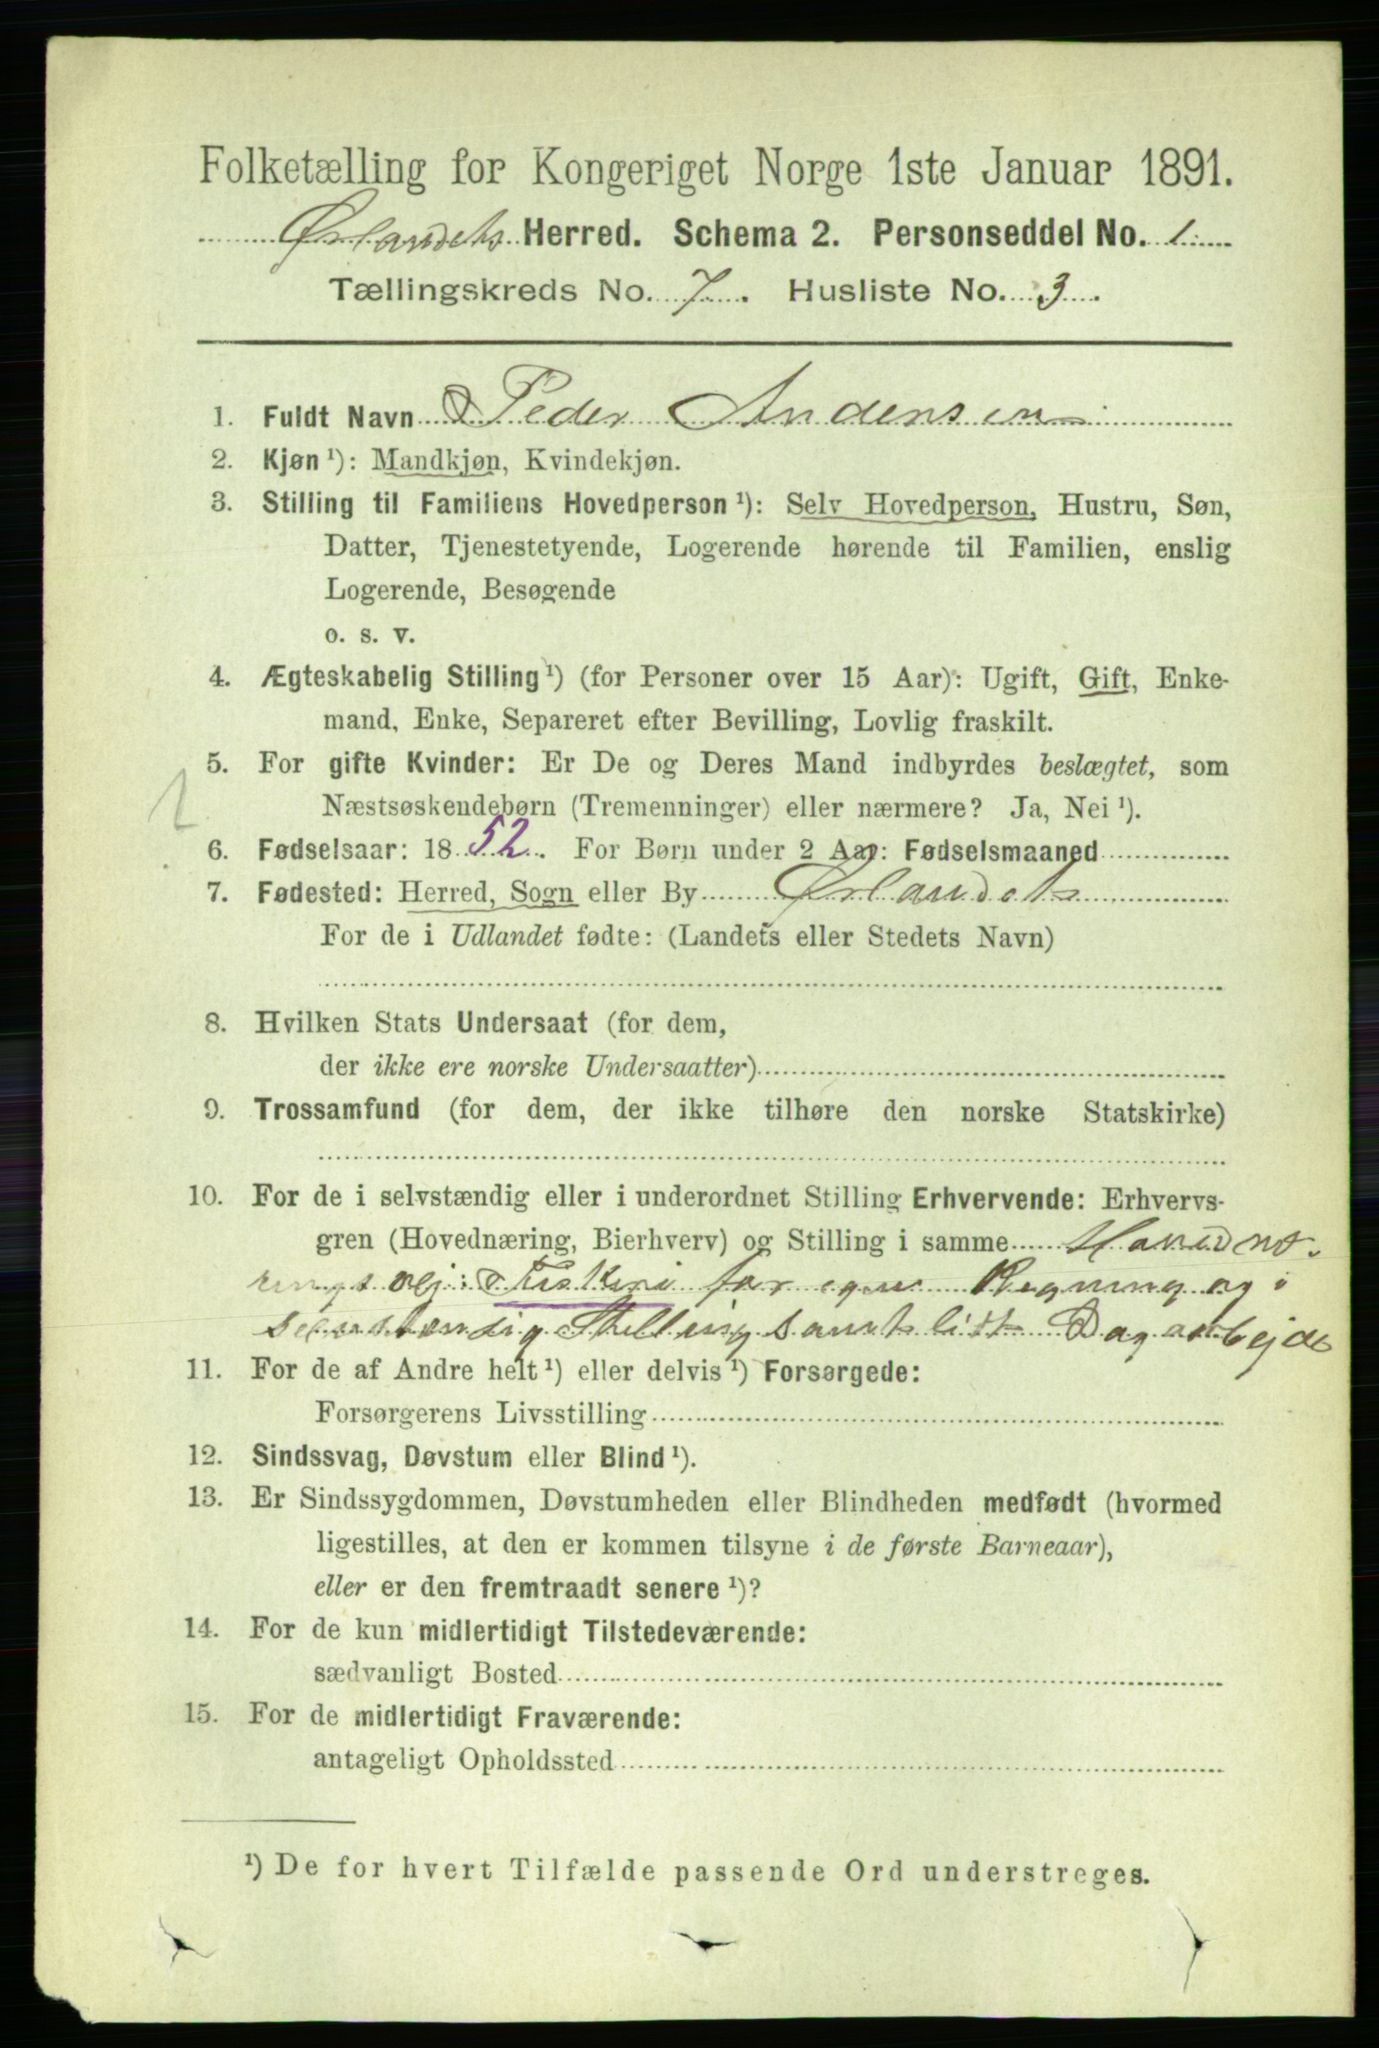 Folketælling for Kongeriget Norge 1ste Januar 1891.
Ørlandets Herred. Schema 2. Personseddel No. 1
Tællingskreds No. 7. Husliste No. 3.
1. Fuldt Navn Peder Andensen
2. Kjøn ¹): Mandkjøn, Kvindekjøn.
3. Stilling til Familiens Hovedperson ¹): Selv Hovedperson, Hustru, Søn,
Datter, Tjenestetyende, Logerende hørende til Familien, enslig
Logerende, Besøgende
o. s. v.
4. Ægteskabelig Stilling ¹) (for Personer over 15 Aar): Ugift, Gift, Enke-
mand, Enke, Separeret efter Bevilling, Lovlig fraskilt.
5. For gifte Kvinder: Er De og Deres Mand indbyrdes beslægtet, som
Næstsøskendebørn (Tremenninger) eller nærmere? Ja, Nei ¹).
6. Fødselsaar: 1852. For Børn under 2 Aar: Fødselsmaaned
7. Fødested: Herred, Sogn eller By Ørlandets
For de i Udlandet fødte: (Landets eller Stedets Navn)
8. Hvilken Stats Undersaat (for dem,
der ikke ere norske Undersaatter)
9. Trossamfund (for dem, der ikke tilhøre den norske Statskirke)
10. For de i selvstændig eller i underordnet Stilling Erhvervende: Erhvervs-
gren (Hovednæring, Bierhverv) og Stilling i samme
Fiskeri for egen Regning og i
selvstændig Stilling samt lidt Dagarbejde
11. For de af Andre helt ¹) eller delvis ¹) Forsørgede:
Forsørgerens Livsstilling
12. Sindssvag, Døvstum eller Blind ¹).
13. Er Sindssygdommen, Døvstumheden eller Blindheden medfødt (hvormed
ligestilles, at den er kommen tilsyne i de første Barneaar),
eller er den fremtraadt senere ¹)?
14. For de kun midlertidigt Tilstedeværende:
sædvanligt Bosted
15. For de midlertidigt Fraværende:
antageligt Opholdssted
¹) De for hvert Tilfælde passende Ord understreges.